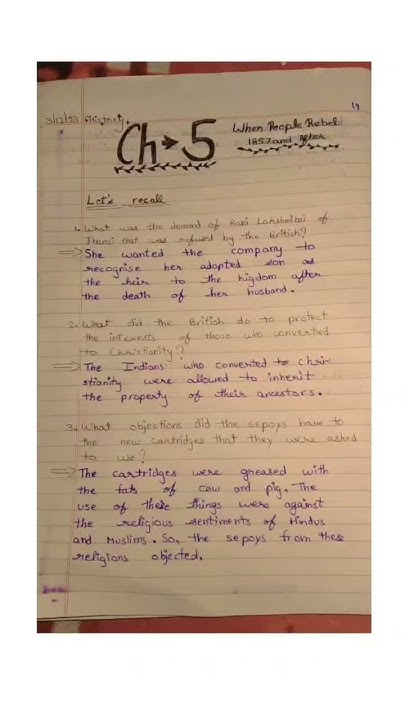 19
3/12/23 History
Ch → 5
When People Rebel
1857 and After
Let's recall
1. What was the demand of Rani Lakshmibai of
Jhansi that was refused by the British?
⇒ She wanted the company to
recognise her adopted son as
the heir to the kigdom after
the death of her husband.
2. What did the British do to protect
the interests of those who converted
to Christianity?
⇒ The Indians who converted to Chri-
stianity were allowed to inherit
the property of their ancestors.
3. What objections did the sepoys have to
the new cartridges that they were asked
to use?
⇒ The cartridges were greased with
the fats of cow and pig. The
use of these things were against
the religious sentiments of Hindus
and Muslims. So, the sepoys from these
religions objected.